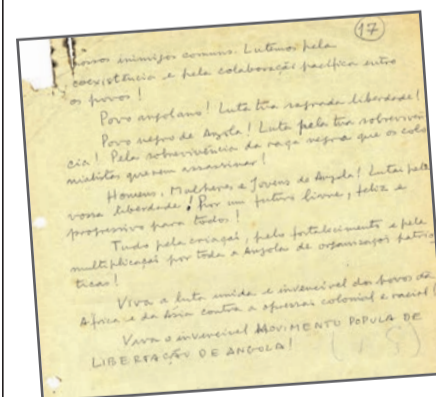 17
nossos inimigos comuns. Lutemos pela
coexistência e pela colaboração pacífica entre
os povos!
Povo angolano! Luta tua sagrada liberdade!
Povo negro de Angola! Luta pela tua sobrevivên
cia! Pela sobrevivência da raça negra que os colo
nialistas querem assassinar!
Homens, Mulheres e Jovens de Angola! Lutai pela
vossa liberdade! Por um futuro livre, feliz e
progressivo para todos!
Tudo pela criação, pelo fortalecimento e pela
multiplicação por toda a Angola de organizações patrió
ticas!
Viva a luta unida e invencível dos povos da
África e da Ásia contra a opressão colonial e racial!
Viva o invencível MOVIMENTO POPULA DE
LIBERTAÇÃO DE ANGOLA!